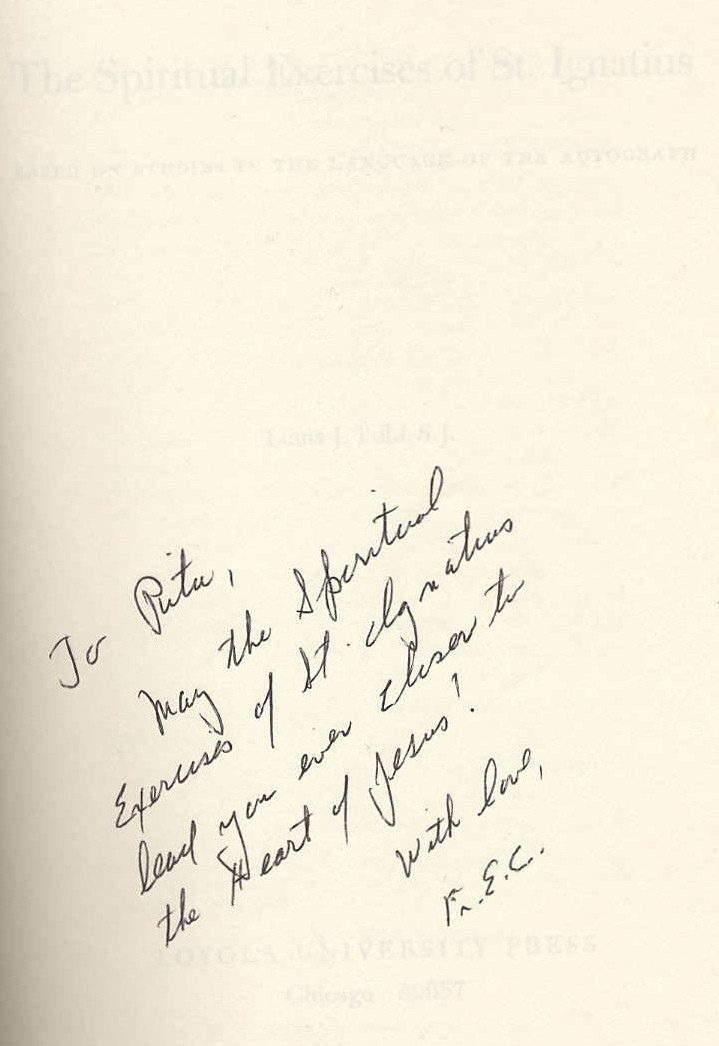 The Spiritual Exercises of St. Ignatius
BASED ON STUDIES IN THE LANGUAGE OF THE AUTOGRAPH
Louis J. Puhl, S.J.
To Rita,
May the Spiritual
Exercises of St. Ignatius
lead you ever closer to
the Heart of Jesus!
With love,
Fr. E.C.
LOYOLA UNIVERSITY PRESS
Chicago 60657